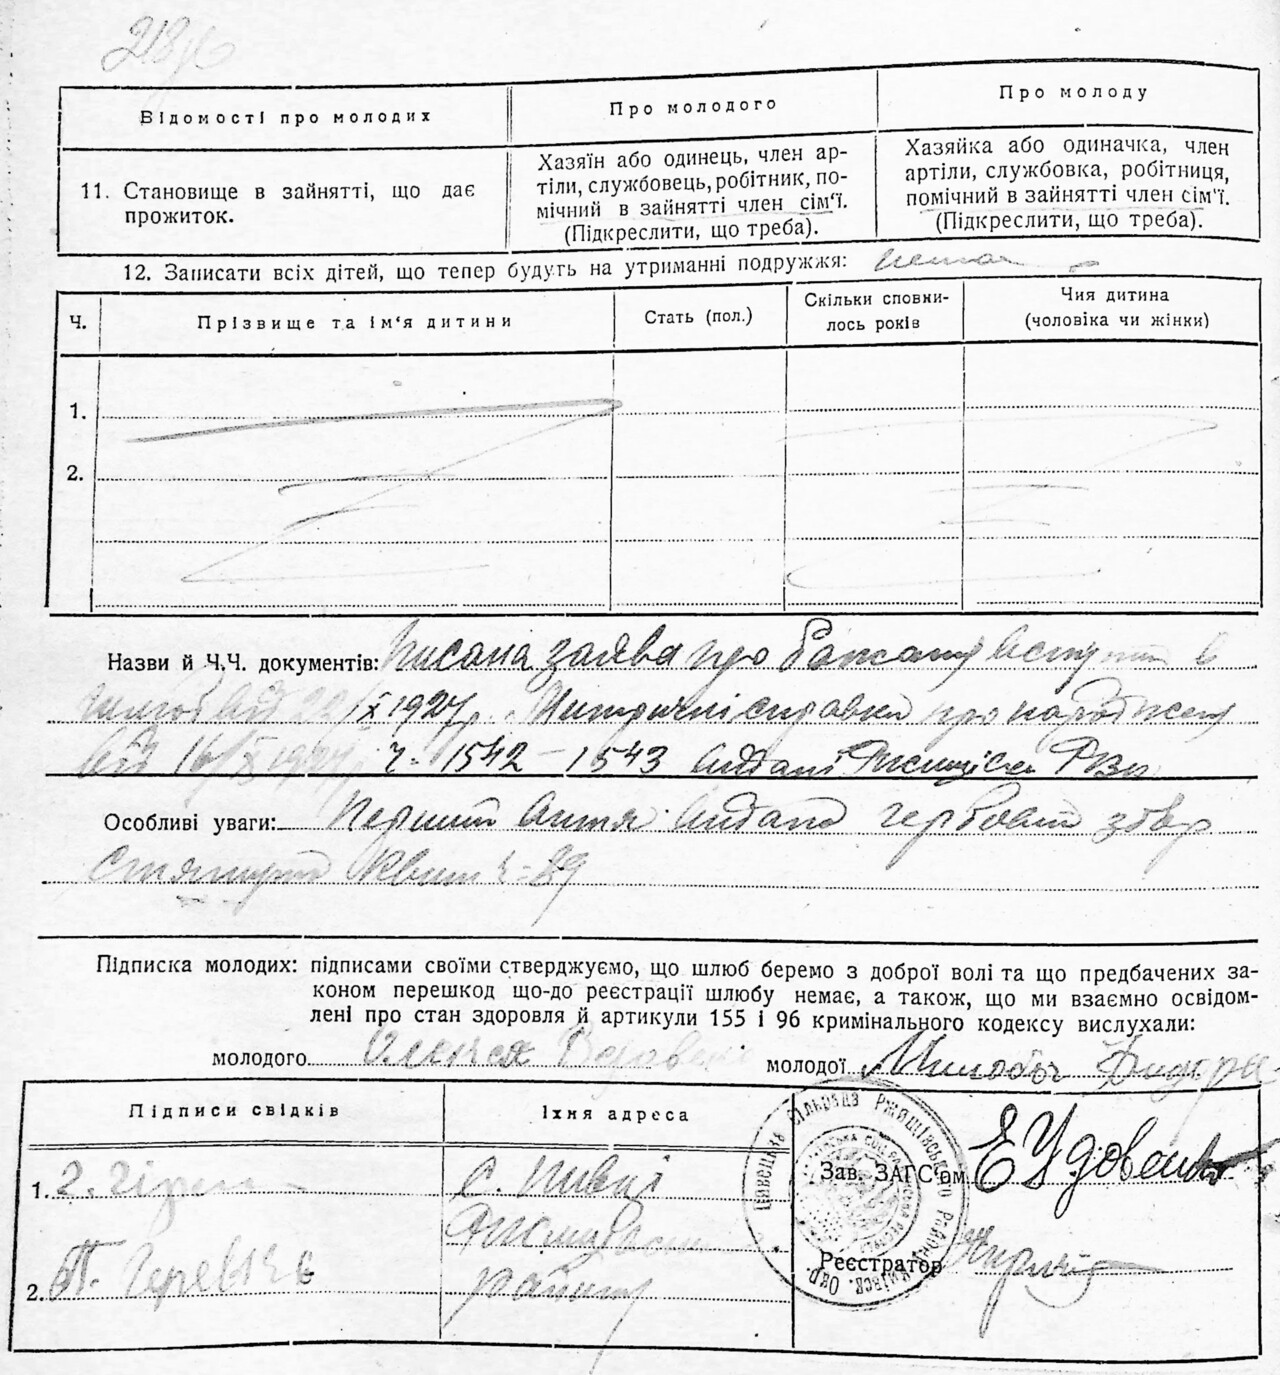 Відомості про молодих
Про молодого
Про молоду
11. Становище в зайнятті, що дає
прожиток.
Хазяїн або одинець, член ар-
тіли, службовець, робітник, по-
мічний в зайнятті член сім'ї.
(Підкреслити, що треба).
Хазяйка або одиначка, член
артіли, службовка, робітниця,
помічний в зайнятті член сім'ї.
(Підкреслити, що треба).
12. Записати всіх дітей, що тепер будуть на утриманні подружжя: нема
Ч.
Прізвище та ім'я дитини
Стать (пол.)
Скільки сповни-
лось років
Чия дитина
(чоловіка чи жінки)
1.
2.
Назви й Ч.Ч. документів: Писана заява про бажання вступити в
шлюб від /X 1927 р. Метричні справки про народження
від 16/X 1927 р. ч. 1542 – 1543 видані РВК
Особливі уваги: Перший витяг видано гербовий збір
стягнуто квит ч-29
Підписка молодих: підписами своїми стверджуємо, що шлюб беремо з доброї волі та що предбачених за-
коном перешкод що-до реєстрації шлюбу немає, а також, що ми взаємно освідом-
лені про стан здоровля й артикули 155 і 96 кримінального кодексу вислухали:
молодого Олекса
молодої
Підписи свідків
Їхня адреса
1.
с. Пивці
району
2. П.
Зав. ЗАГС'ом Е Удовенко
Реєстратор
Пивецька сільрада Ржищівського Району Київськ. Окр.